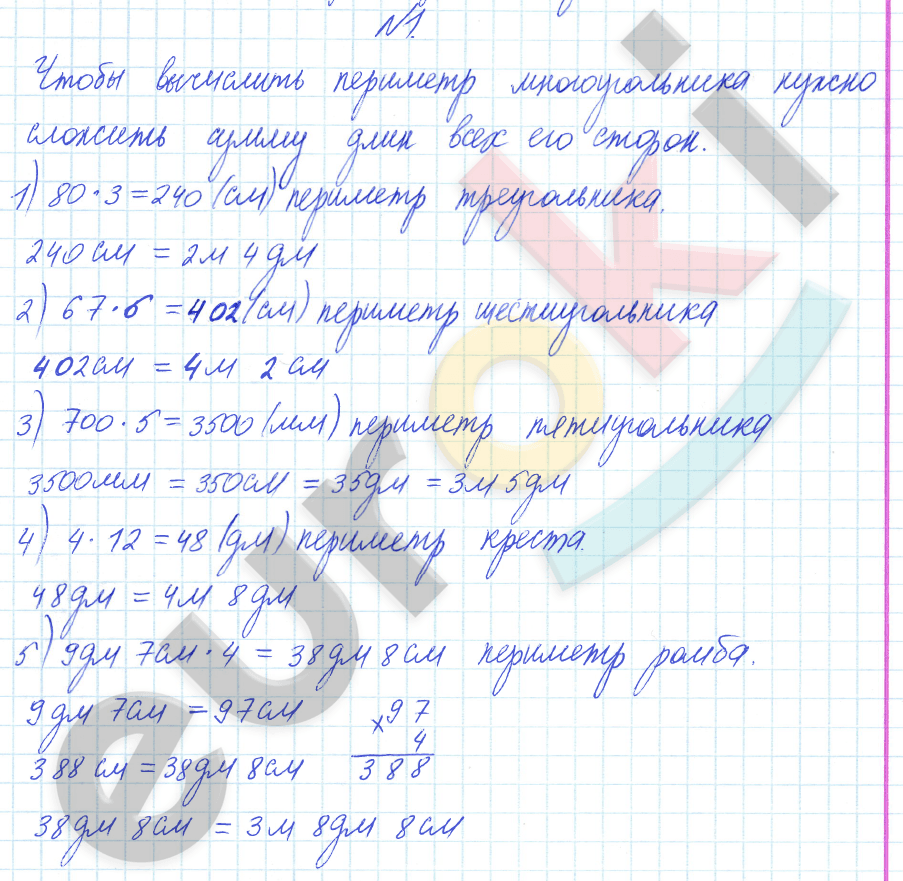 №1.
Чтобы вычислить периметр многоугольника нужно
сложить сумму длин всех его сторон.
1) 80·3=240 (см) периметр треугольника.
240см = 2м 4дм
2) 67·6 =402(см) периметр шестиугольника
402см = 4м 2см
3) 700·5=3500(мм) периметр пятиугольника
3500мм = 350см = 35дм = 3м 5дм
4) 4·12=48 (дм) периметр креста.
48дм = 4м 8дм
5) 9дм 7см·4 = 38дм 8см периметр ромба.
9дм 7см = 97см
×97
4
388см=38дм 8см
388
38дм 8см = 3м 8дм 8см
euroki